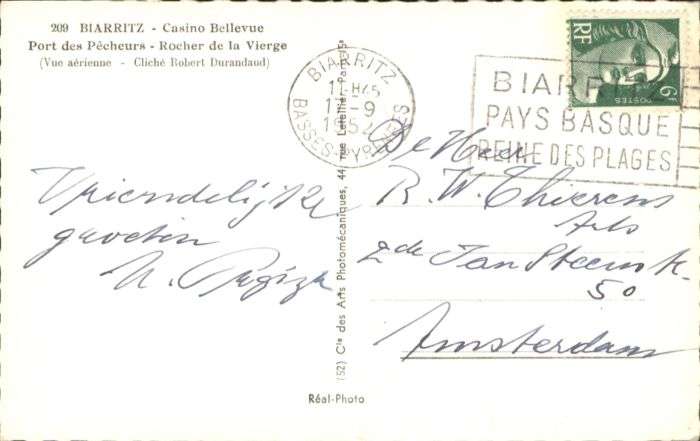 209 BIARRITZ - Casino Bellevue
Port des Pêcheurs - Rocher de la Vierge
(Vue aérienne - Cliché Robert Durandaud)
BIARRITZ
11H45
1952
BASSES-PYRENEES
RF
POSTES
6F
BIARRITZ
PAYS BASQUE
REINE DES PLAGES
Vriendelijke
groeten
N.
(52) Cie des Arts Photomécaniques, 44, rue Letellier Paris 15e
De Heer
R. W. Thierens
Arts
2de Jan Steenstr.
50
Amsterdam
Réal-Photo